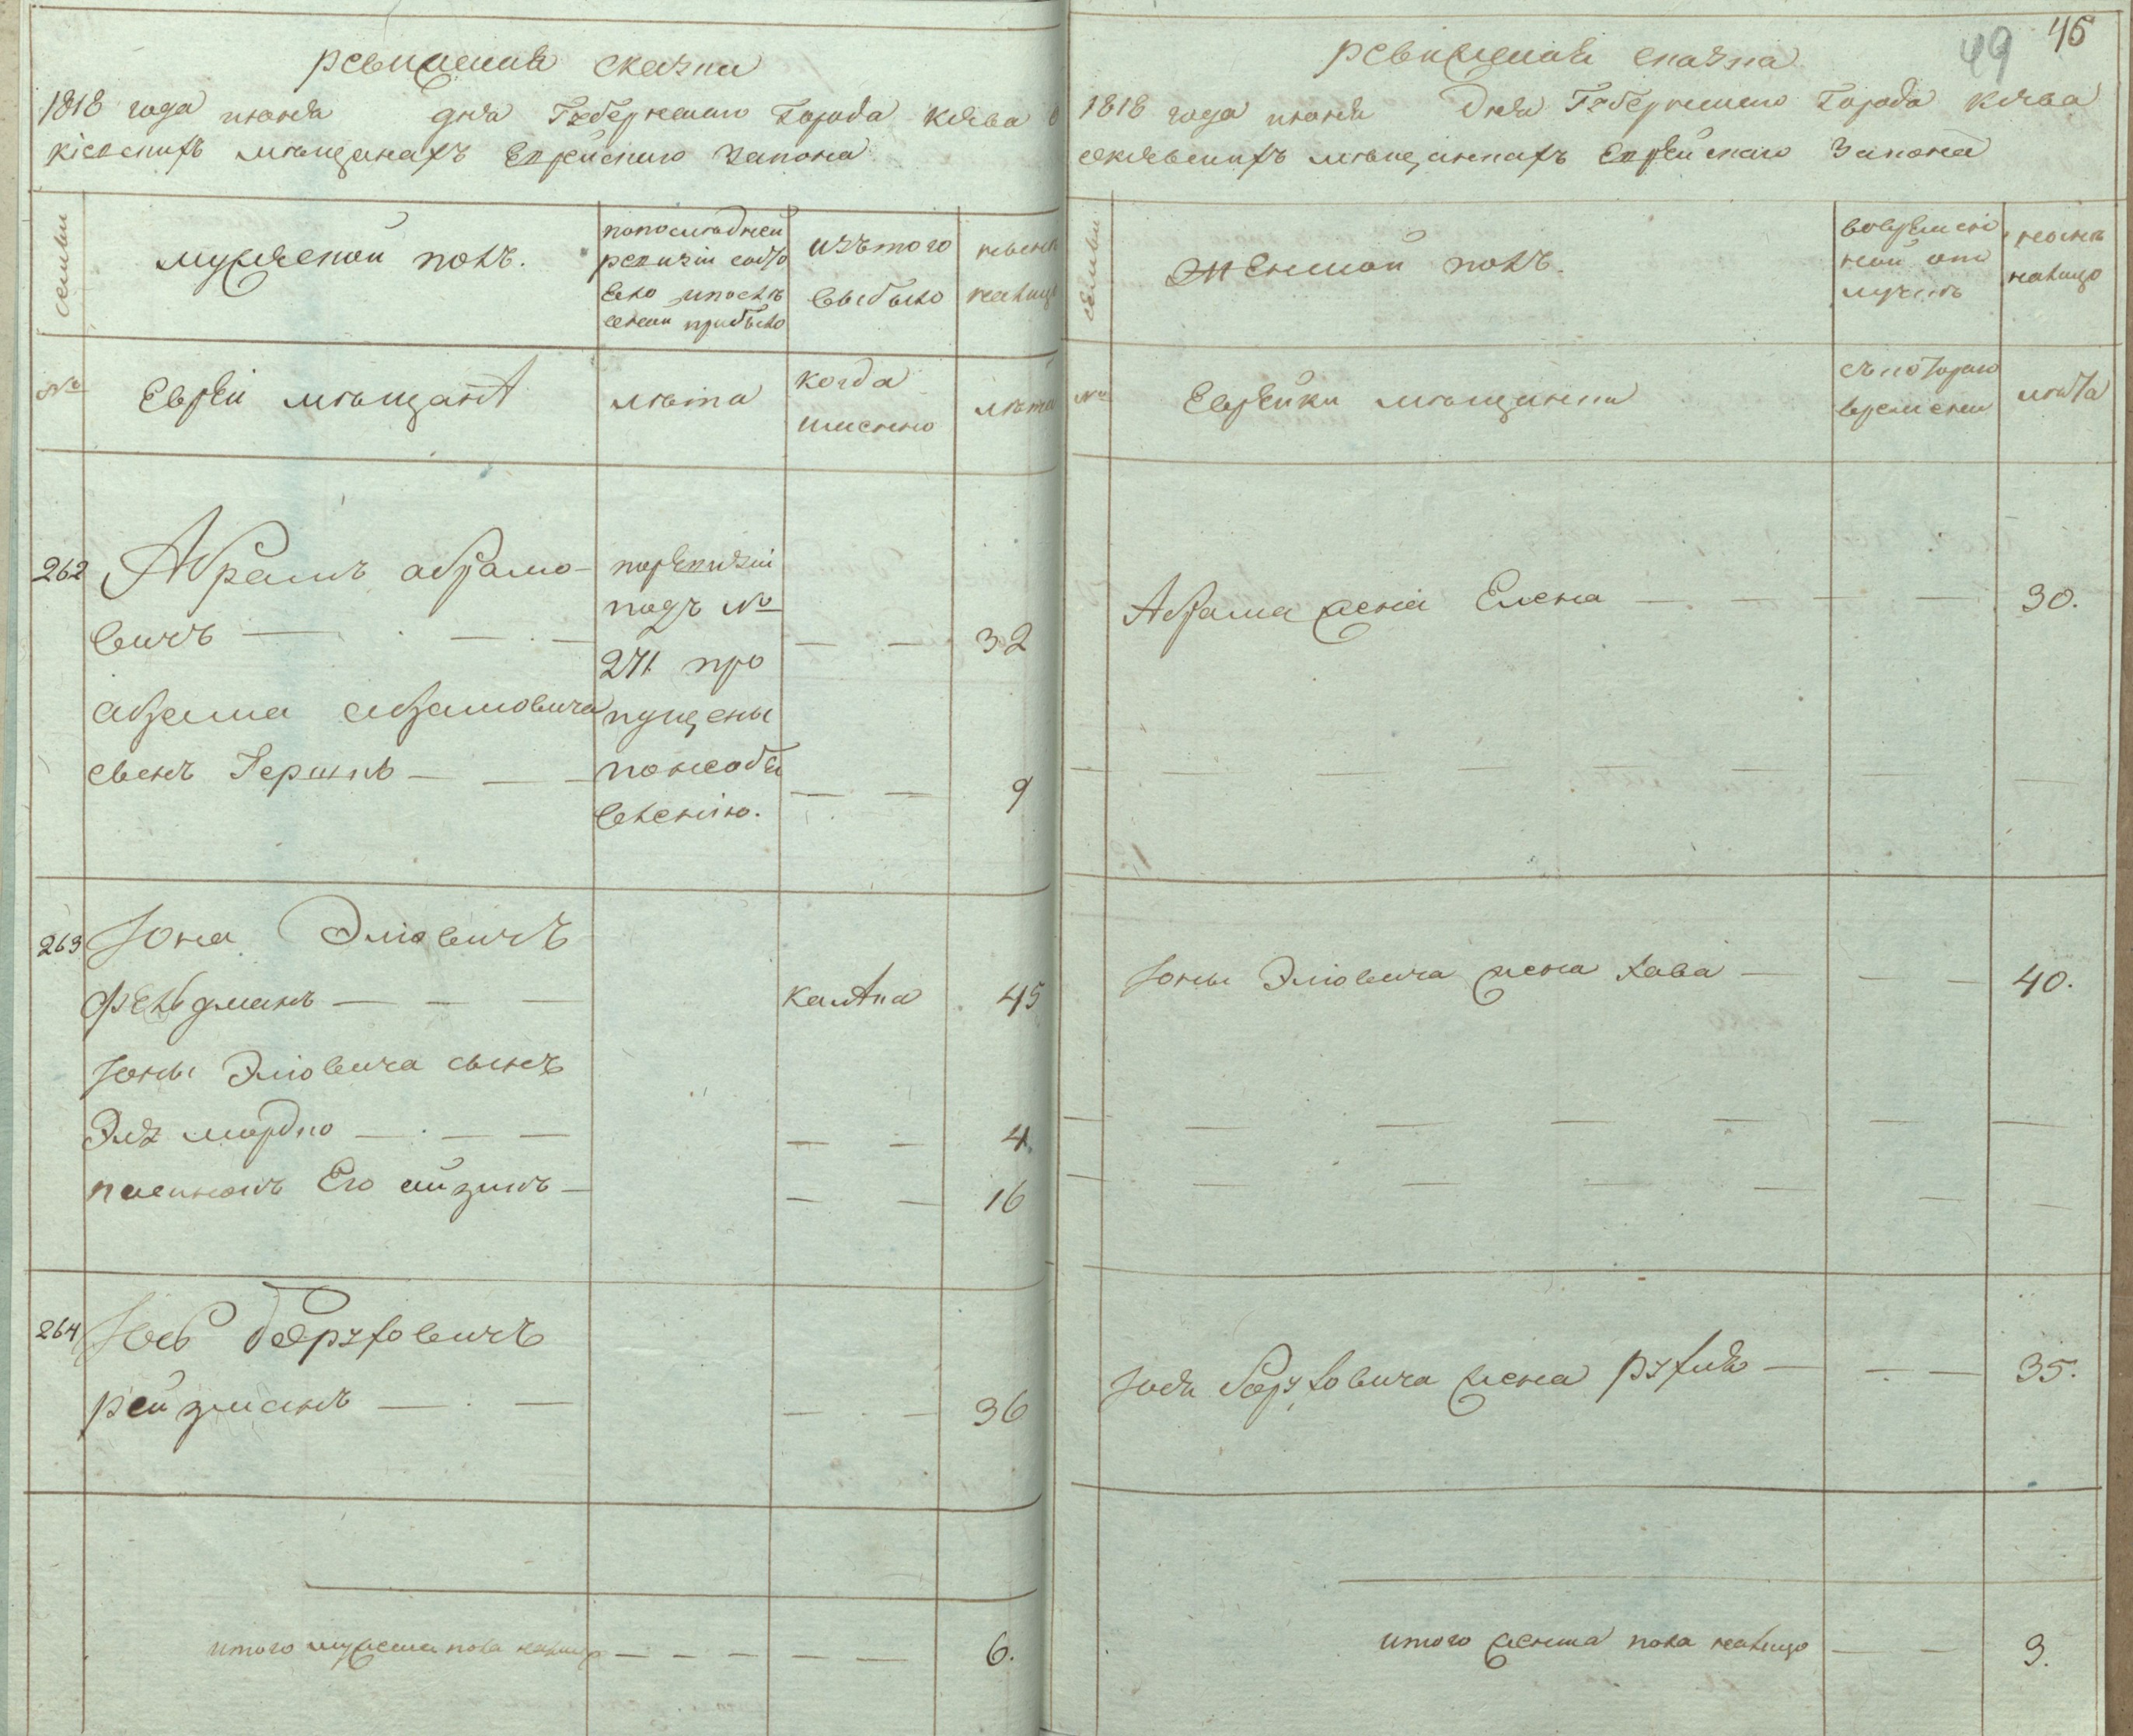 ревизская сказка
1818 года июня дня Губернскаго Города Кіева о
кіевскихъ мѣщанахъ Еврейскаго Закона
семьи
мужеской полъ.
попоследней
ревизіи состо
яло ипосле
оной прибыло
изътого
выбыло
ныне
налицо
№
Евреи мѣщанѣ
лѣта
когда
имянно
лѣта
262
Абрамъ абрамо-
вичъ
поревизіи
подъ №
271 про
пущены
понеобъя
вленію.
32
абрама абрамовича
сынъ Гершко
9
263
Іона Эліовичъ
Фельдманъ
45
Іоны Эліовича сынъ
Эль мордко
4.
племянникъ Его айзикъ
16
264
Іось боруховичъ
рейзманъ
36
итого мужеска пола налицо
6.
49
45
ревизская сказка
1818 года июня дня Губернскаго Города Кіева
окіевскихъ мѣщанкахъ Еврейскаго Закона
семьи
Женской полъ.
вовремен
ной от
лучке
ныне
налицо
№
Еврейки мѣщанки
съкотораго
времени
лѣта
Абрама жена Елена
30.
Іоны Эліовича жена хава
40.
Іося боруховича жена рухля
35.
итого женска пола налицо
3.